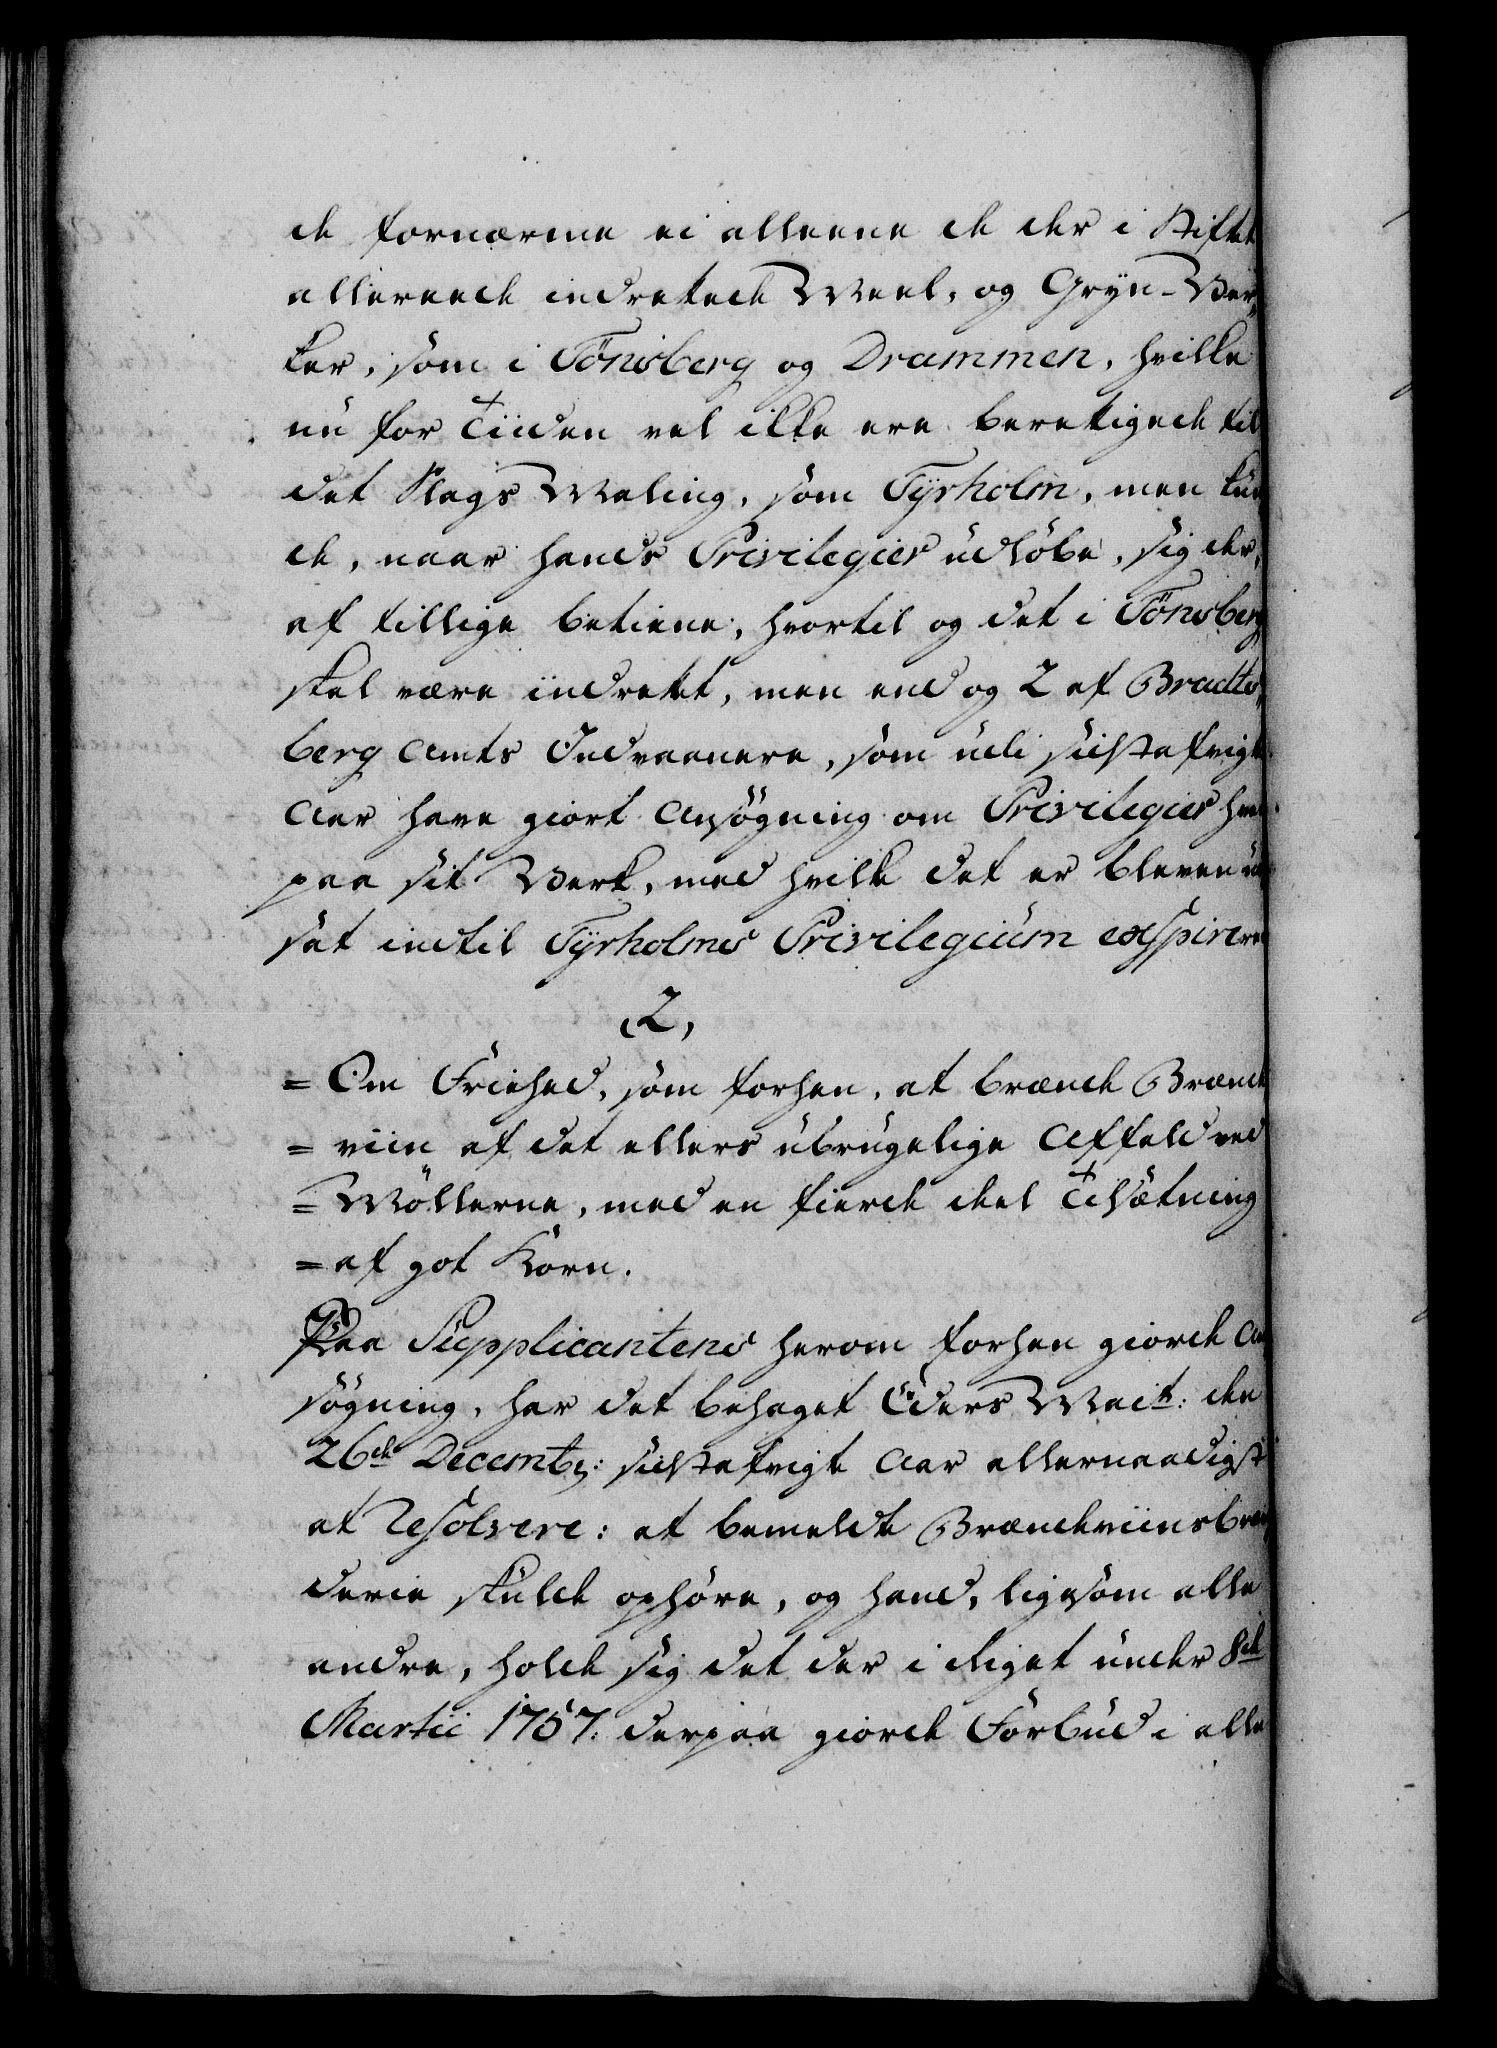 de fornærme ei alleene de der i Stiftet
allereede indrettede Meel, og Gryn-Vær„
ker, som i Tönsberg og Drammen, hvilke
nu for Tiiden vel ikke ere berettigede til
det Slags Maling, som Tyrholm, men kun„
de, naar hands Privilegier udløbe, sig der„
af tillige betiene, hvortil og det i Tönsberg
skal være iindrettet, men end og 2 af Bradts„
berg Amts Indvaanere, som udi sidstafvigte
Aar have giort Ansøgning om Privilegier hver
paa sit Verk, med hvilke det er bleven ud
sat indtil Tyrholms Privilegium exspirerer
2,
= Om Friehed, som forhen, at brænde Brænde
= viin af det ellers ubrugelige Affald ved
= Møllerne, med en fierde deel Tilsætning
= af got Korn.
Paa Supplicantens herom forhen giorde An
søgning, har det behaget Eders Mait: den
26de Decembr: sidstafvigte Aar allernaadigst
at Resolvere: at bemeldte Brændeviinsbræn
derie skulde ophøre, og hand, ligesom alle
andre, holde sig det der i Riget under 8de
Martii 1757. derpaa giorde Forbud i alle